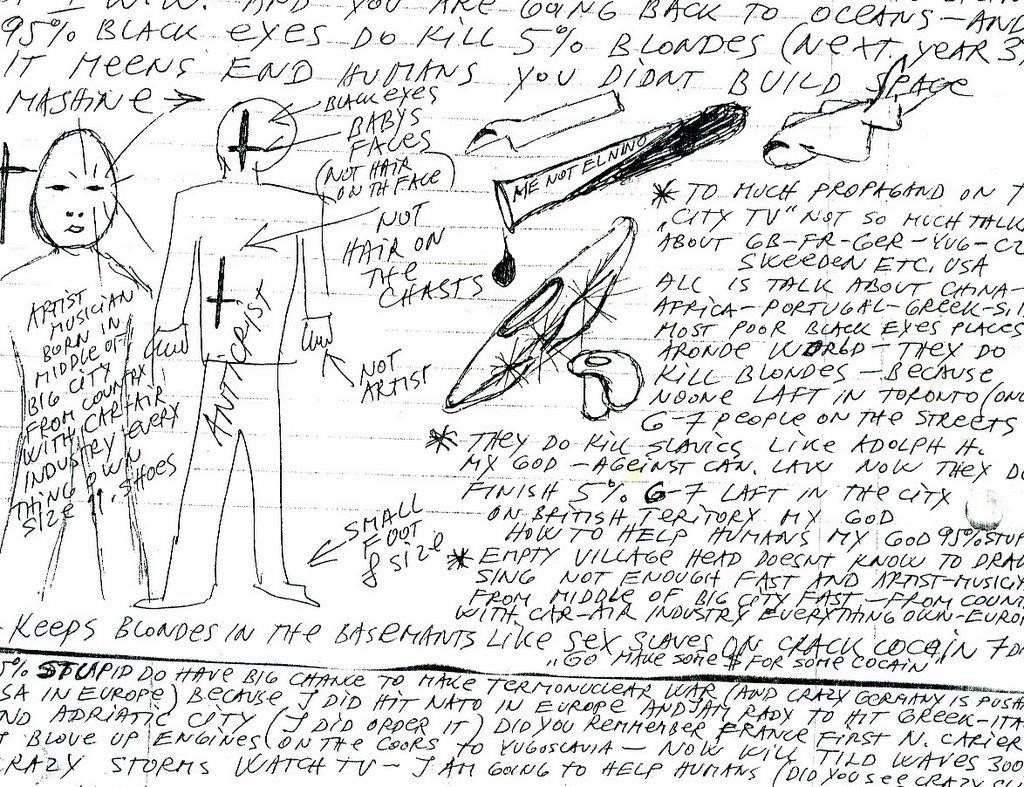 I WIN. AND YOU ARE GOING BACK TO OCEANS — AND
95% BLACK EYES DO KILL 5% BLONDES (NEXT YEAR 3
IT MEENS END HUMANS YOU DIDNT BUILD SPACE
MASHINE
BLACK EYES
BABYS
FACES
(NOT HAIR
ON TH FACE)
NOT
HAIR ON
THE
CHASTS
ME NOT ELNINO
ARTIST
MUSICIAN
BORN IN
MIDDLE OFF
BIG CITY
FROM COUNTRY
WITH CAR-AIR
INDUSTRY EVERY
THING OWN
SIZE 11. SHOES
ANTICRIST
NOT
ARTIST
SMALL
FOOT
8 SIZE
* TO MUCH PROPAGAND ON T
"CITY TV" NOT SO MUCH TALK
ABOUT GB-FR-GER-YUG-CZ
SKEEDEN ETC. USA
ALL IS TALK ABOUT CHINA-
AFRICA-PORTUGAL-GREEK-S.I
MOST POOR BLACK EYES PLACES
ARONDE WORLD — THEY DO
KILL BLONDES — BECAUSE
NOONE LAFT IN TORONTO (ON
6-7 PEOPLE ON THE STREETS
* THEY DO KILL SLAVICS LIKE ADOLPH H.
MY GOD — AGEINST CAN. LAW NOW THEY DO
FINISH 5% 6-7 LAFT IN THE CITY
ON BRITISH TERITORY MY GOD
HOW TO HELP HUMANS MY GOD 95% STUP
* EMPTY VILLAGE HEAD DOESNT KNOW TO DRAW
SING NOT ENOUGH FAST AND ARTIST-MUSICI
FROM MIDDLE OF BIG CITY FAST — FROM COUN
WITH CAR-AIR INDUSTRY EVERYTHING OWN-EURO
-KEEPS BLONDES IN THE BASEMANTS LIKE SEX SLAVES ON CRACK COCAIN 7 D
"GO MAKE SOME $ FOR SOME COCAIN"
5% STUPID DO HAVE BIG CHANCE TO MAKE TERMONUCLEAR WAR (AND CRAZY GERMANY IS PUSH
SA IN EUROPE) BECAUSE I DID HIT NATO IN EUROPE AND JAM RADY TO HIT GREEK-ITA
ND ADRIATIC CITY (I DID ORDER IT) DID YOU REMMEMBER FRANCE FIRST N. CARIER
BLOVE UP ENGINES (ON THE COORS TO YUGOSLAVIA — NOW KILL TILD WAVES 300
CRAZY STORMS WATCH TV — I AM GOING TO HELP HUMANS (DID YOU SEE CRAZY